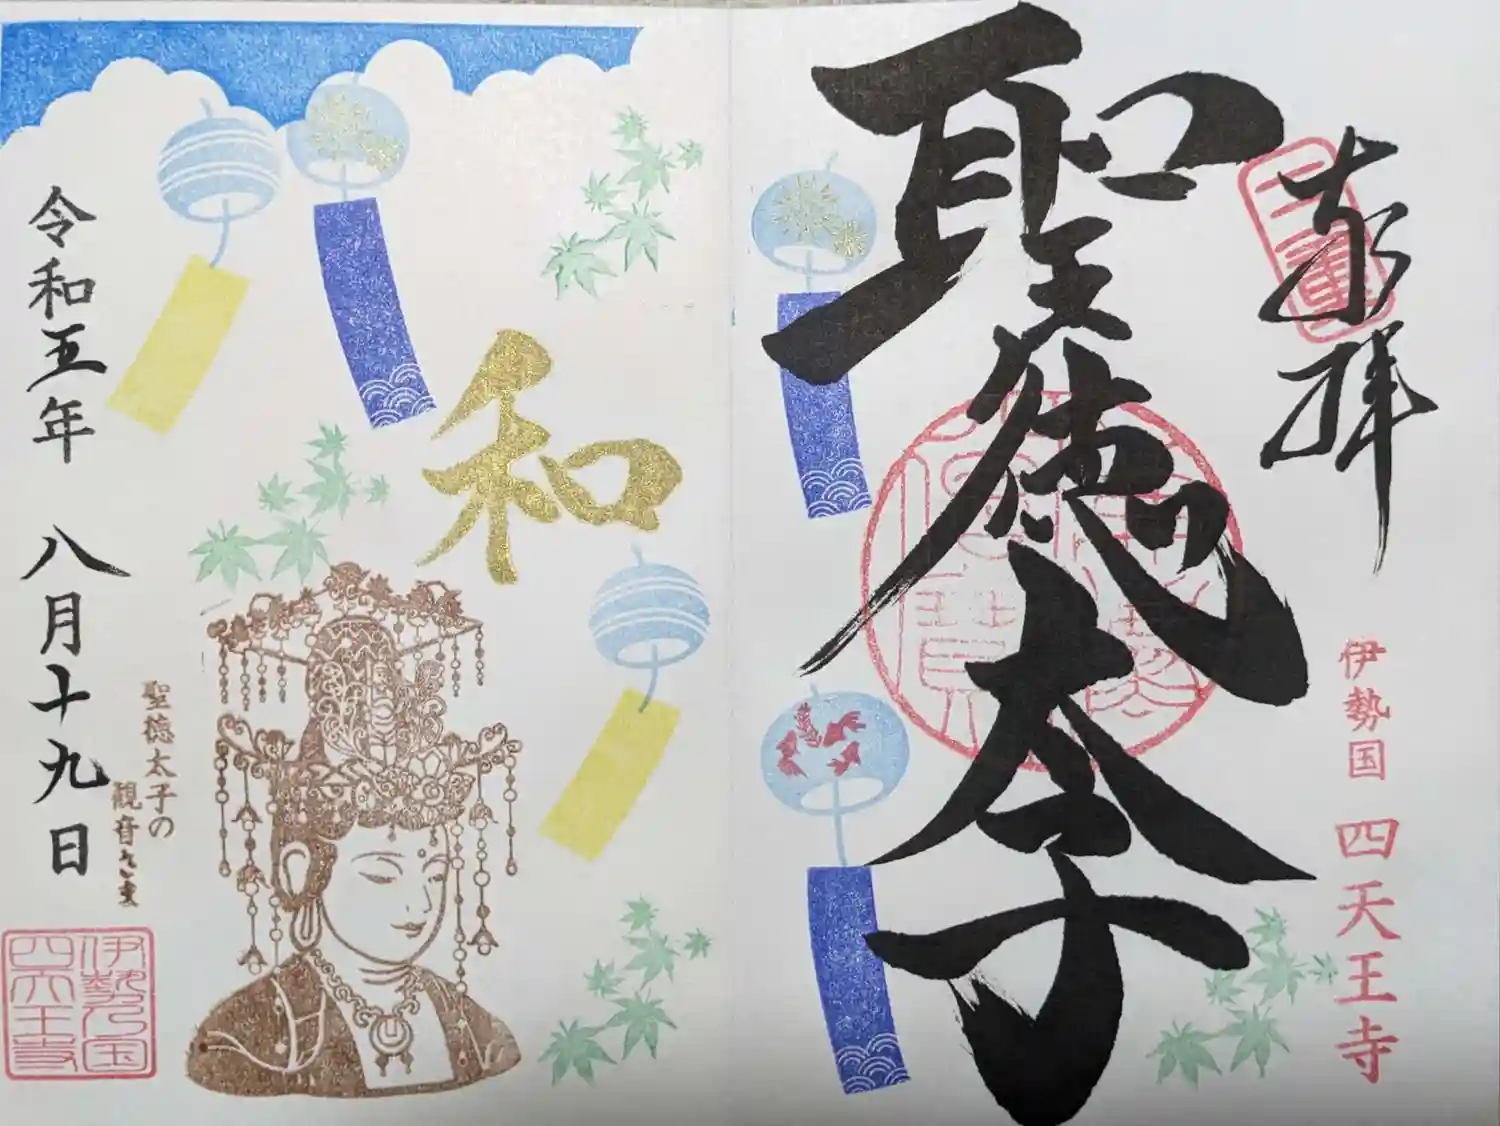 奉拝
二重
聖徳太子
伊勢国 四天王寺
和
令和五年 八月十九日
聖徳太子の
観音さま
伊勢乃国
四天王寺